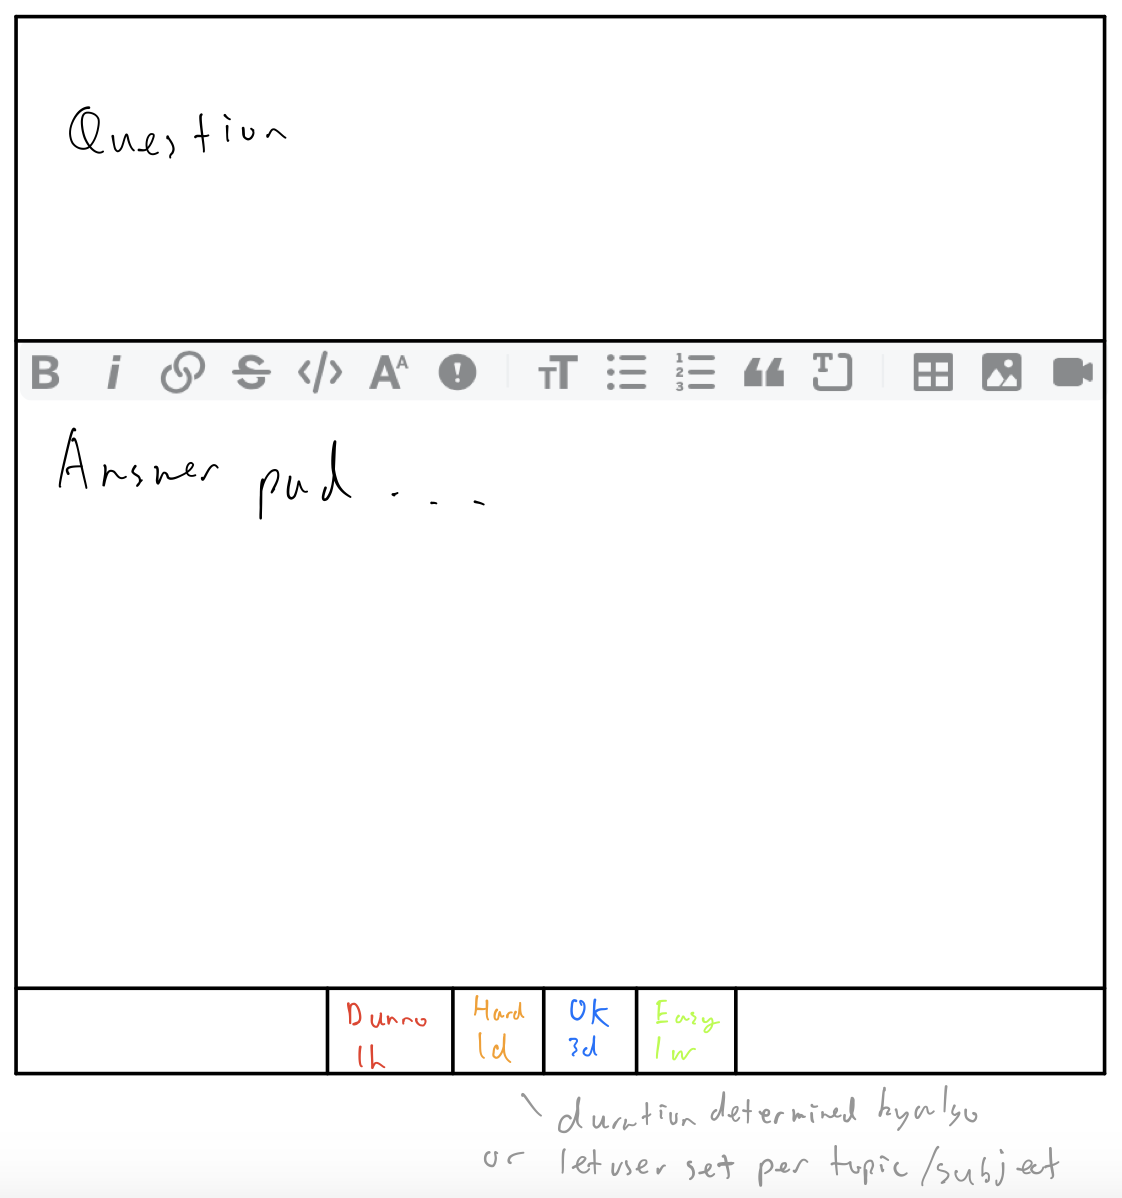 Question
B i S </> AA ! TT 1 2 3 “ T
Answer pad ...
Dunno Hard Ok Easy
1h 1d 3d 1w
duration determined by algo
or let user set per topic/subject